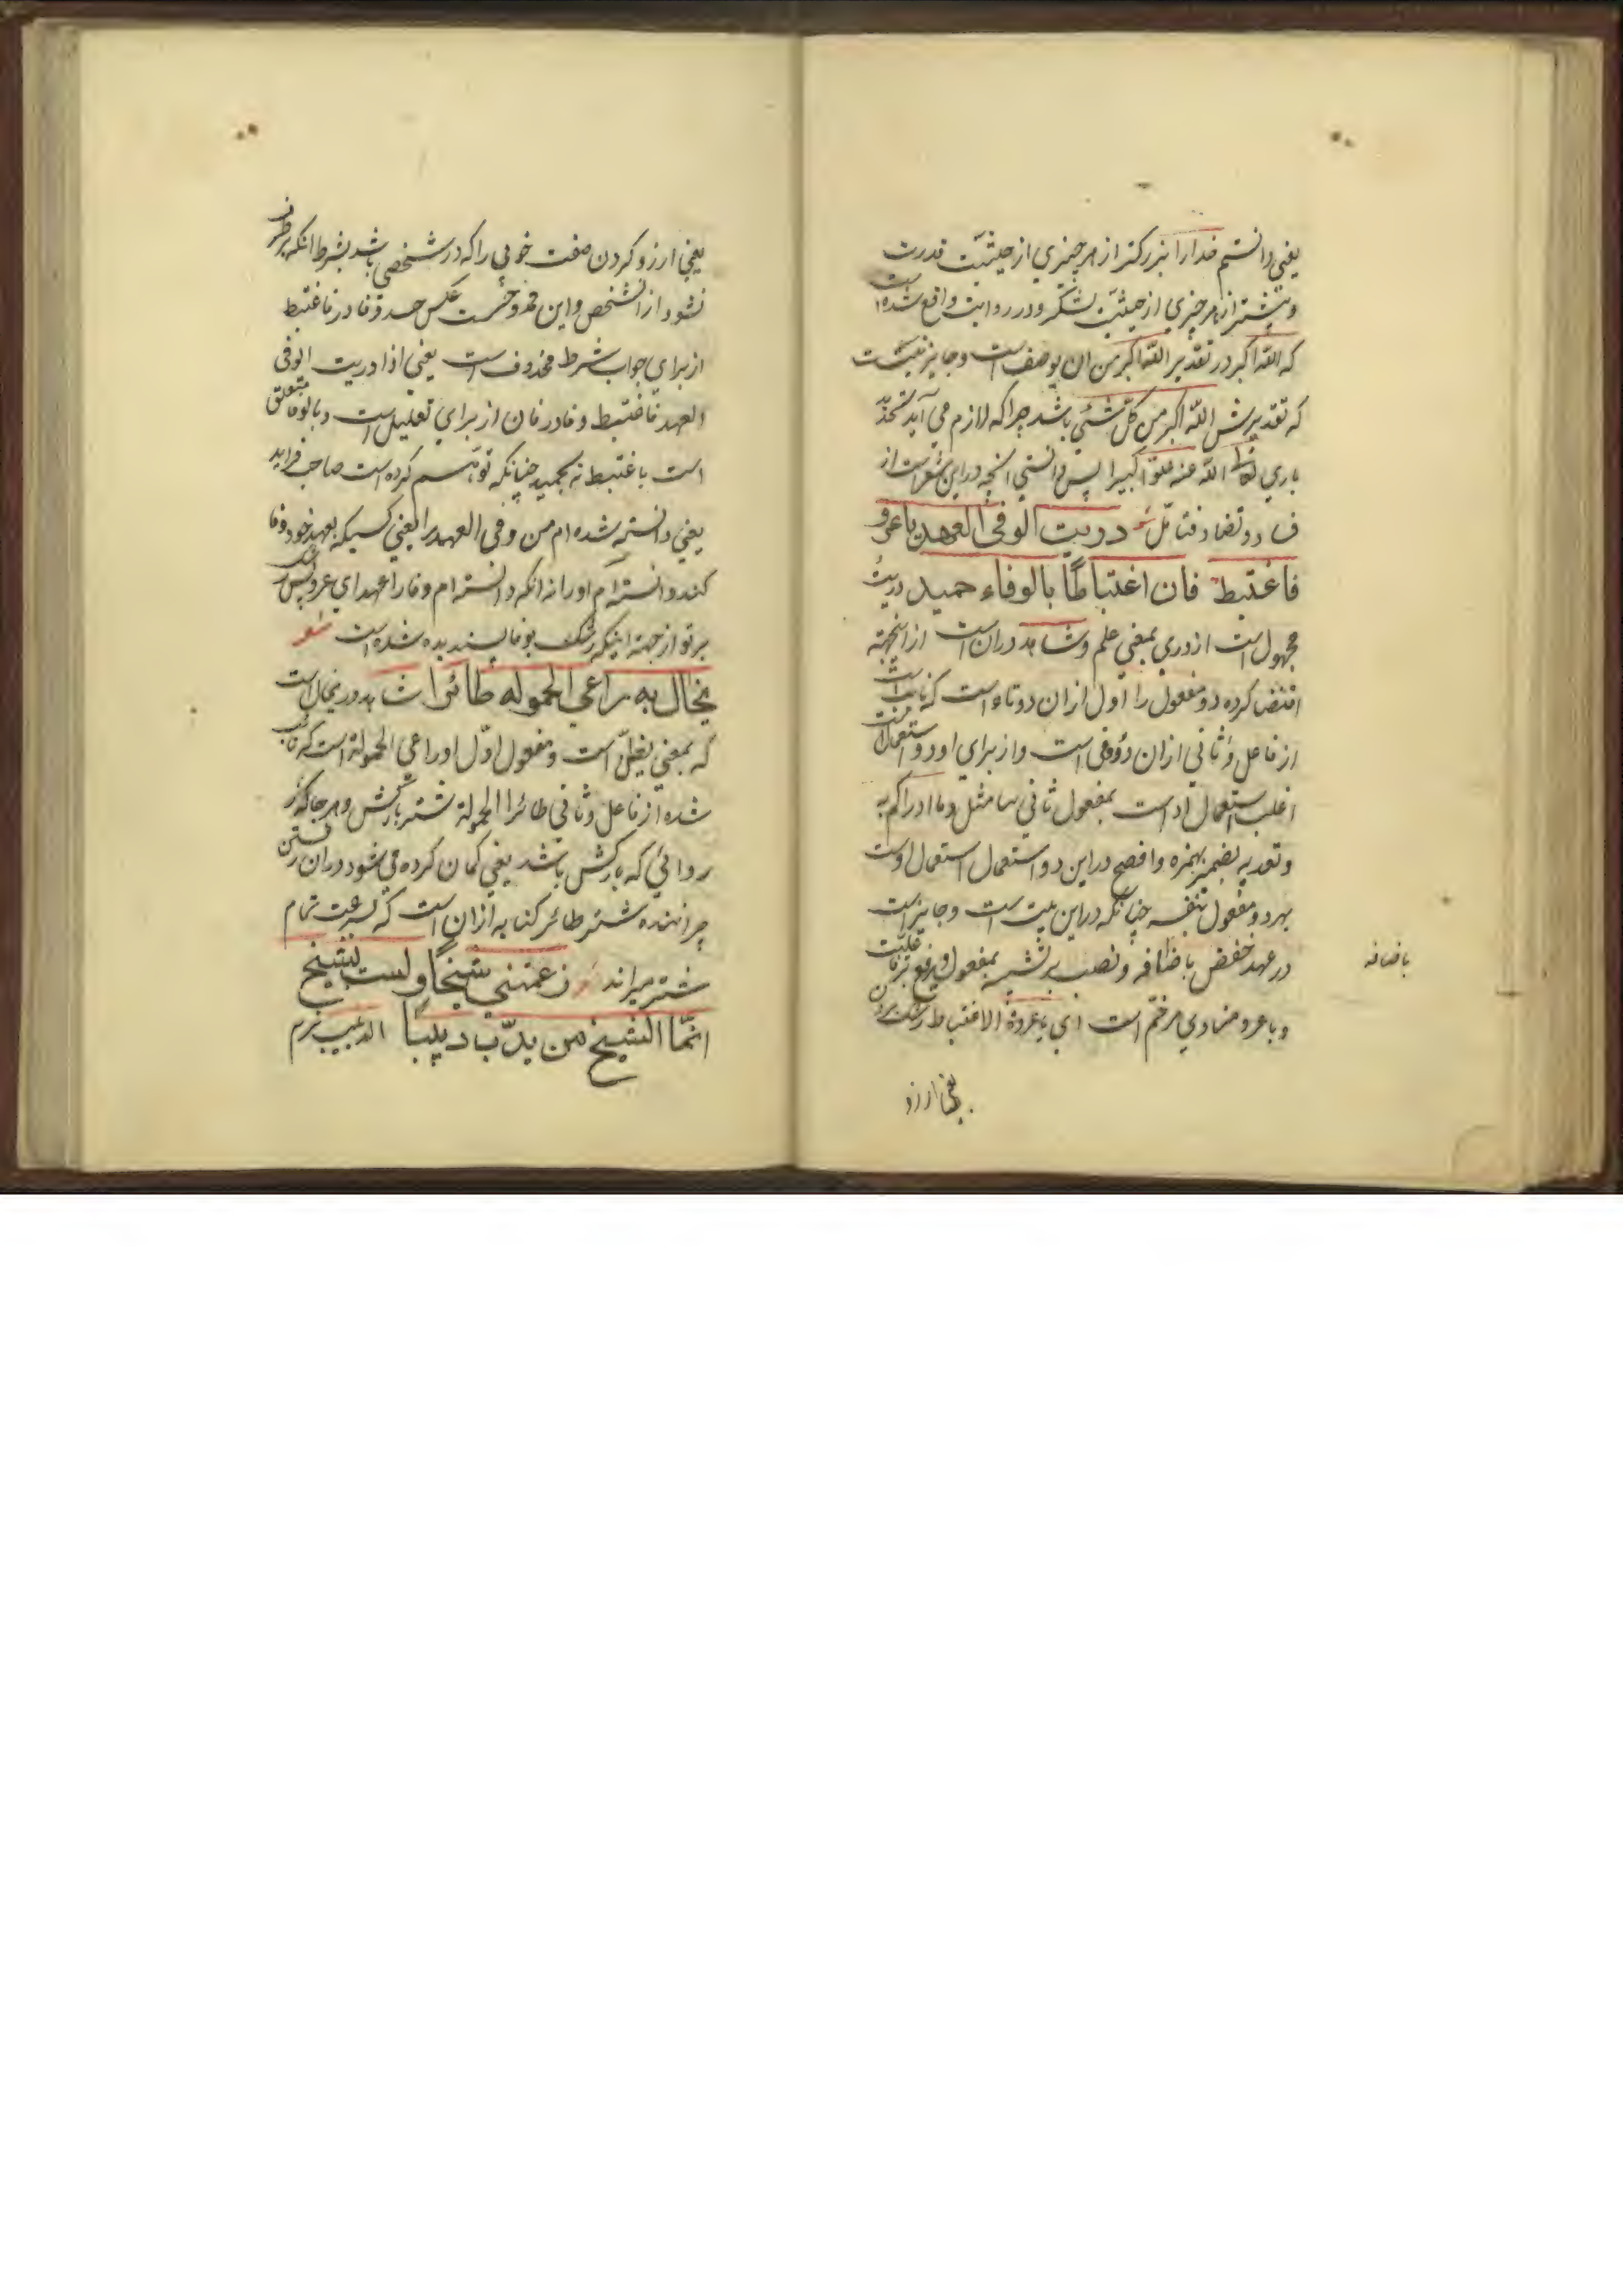 یعنی دانستم خدا را بزرکتر از هر چیزی از حیثیت قدرت
و بیشتر از هر چیزی از حیثیت لشکر و در روایت واقع شده است
که الله اکبر در تقدیر الله اکبر من ان یوصف است و جایز نیست
که تقدیرش الله اکبر من کل شئی باشد چرا که لازم می آید تحدید
باری تعالی الله عنه علوا کبیرا پس دانستی انچه در این شعر است از
دو تضاد فتامل شعر دریت الوفی العهد یا عرو
فاغتبط فان اغتباطا بالوفاء حمید دریت
مجهول است از دری بمعنی علم و شاهد دران است از اینجهة
اقتضا کرده دو مفعول را اول ازان دو تاء است که نایب است
از فاعل و ثانی ازان دو وفی است و از برای او دو استعمال است
اغلب استعمال او است بمفعول ثانی ببا مثل وما ادراکم به
و تعدیه بضمیر بهمزه و افصح در این دو استعمال استعمال اوست
بهر دو مفعول بنفسه چنانکه در این بیت است و جایز است
در عهد خفض باضافه و نصب بر تشبیه بمفعول و رفع بر فاعلیت
باضافه
و یا عرو منادی مرخم است ای یا عروة الاغتباط رشک بردن
یعنی ارزو
یعنی ارزو کردن صفت خوبی را که در شخصی باشد بشرط انکه برطرف
نشود از انشخص و این ممدوحست عکس حسد و فا در فاغتبط
از برای جواب شرط محذوف است یعنی اذا دریت الوفی
العهد فاغتبط و فا در فان از برای تعلیل است و بالوفا متعلق
است باغتبط نه بحمید چنانکه توهم کرده است صاحب فراید
یعنی دانسته شده ام من وفی العهد را یعنی کسیکه بعهد خود وفا
کند و انسته ام او را نه انکه دانسته ام وفا را عهد ای عرو پس رشک
بر تو از جهة اینکه رشک بوفا پسندیده شده است شعر
یخال به راعی الحموله طائرا شاهد در یخال است
که بمعنی یظن است و مفعول اول او راعی الحمولة است که نایب
شده از فاعل و ثانی طائرا الحمولة شتر بارکش و هر جا که
روائی که بارکش باشد یعنی کمان کرده می شود دران رفتن
چراننده شتر طائر کنایه ازان است که بسرعت تمام
شتر میراند زعمتنی شیخا ولست بشیخ
انما الشیخ من یدب دبیبا الدبیب نرم